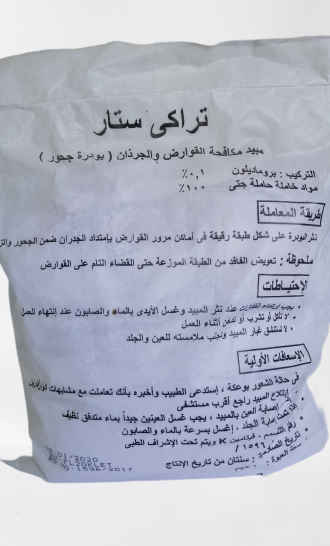 تراكى ستار
مبيد مكافحة القوارض والجرذان ( بودرة جحور )
التركيب : بروماديلون ٠,١٪
مواد خاملة حاملة حتى ١٠٠٪
طريقة المعاملة
نثر البودرة على شكل طبقة رقيقة فى أماكن مرور القوارض بإمتداد الجدران ضمن الجحور
ملحوظة : تعويض الفاقد من الطبقة الموزعة حتى القضاء التام على القوارض
الإحتياطات
• يجب إرتداء القفازات عند نثر المبيد وغسل الأيدى بالماء والصابون عند إنتهاء العمل
• لا تأكل أو تشرب أو تدخن أثناء العمل
• لا تستنشق غبار المبيد وتجنب ملامسته للعين والجلد
الإسعافات الأولية
فى حالة الشعور بوعكة ، إستدعى الطبيب وأخبره بأنك تعاملت مع مشابهات
إبتلاع المبيد راجع أقرب مستشفى
إصابة العين بالمبيد ، يجب غسل العينين جيداً بماء متدفق نظيف
إصابة الجلد ، إغسل بسرعة بالماء والصابون
فيتامين K ويتم تحت الإشراف الطبى
رقم التسجيل / ١٥٩٦
تاريخ الصلاحية : سنتان من تاريخ الإنتاج
01/2020
1596-2017